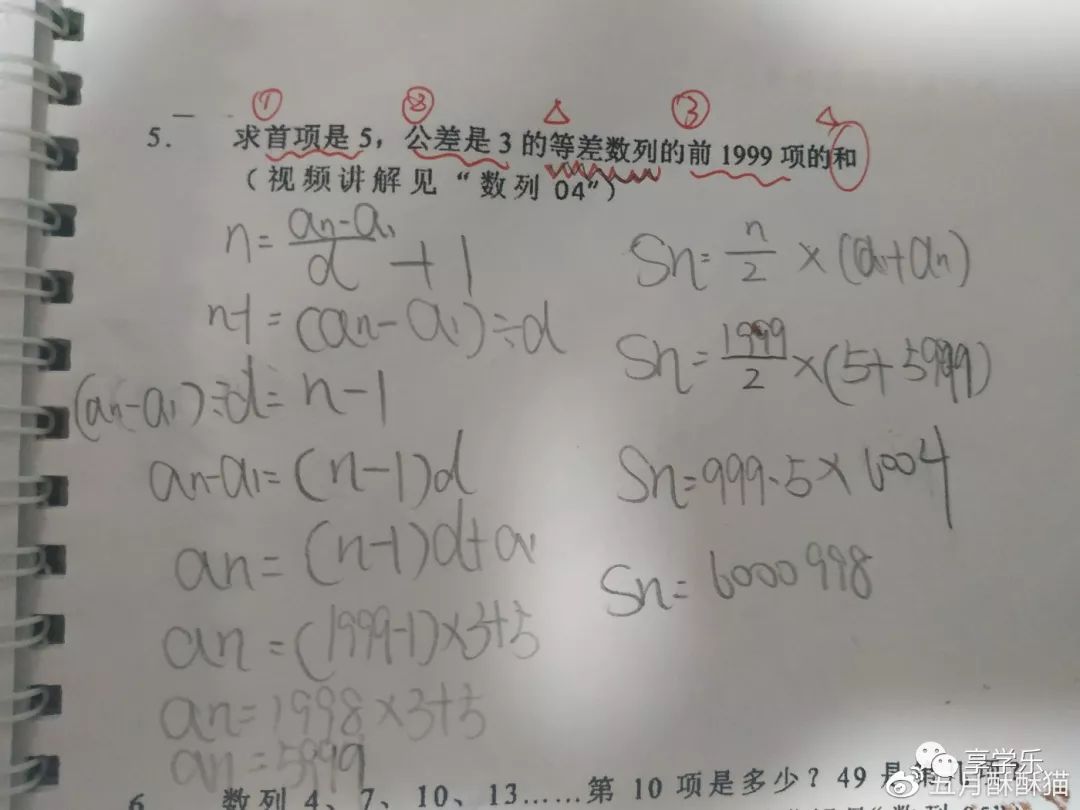 ① ② △ ③ △
5. 求首项是 5，公差是 3 的等差数列的前 1999 项的和
（视频讲解见“数列 04”）
n = (an-a1)/d + 1
n-1 = (an-a1)÷d
(an-a1)÷d = n-1
an-a1 = (n-1)d
an = (n-1)d+a1
an = (1999-1)×3+5
an = 1998×3+5
an = 5999
Sn = n/2 × (a1+an)
Sn = 1999/2 ×(5+5999)
Sn = 999.5×6004
Sn = 6000998
6. 数列 4、7、10、13……第 10 项是多少？49 是
享学乐
五月酥酥猫